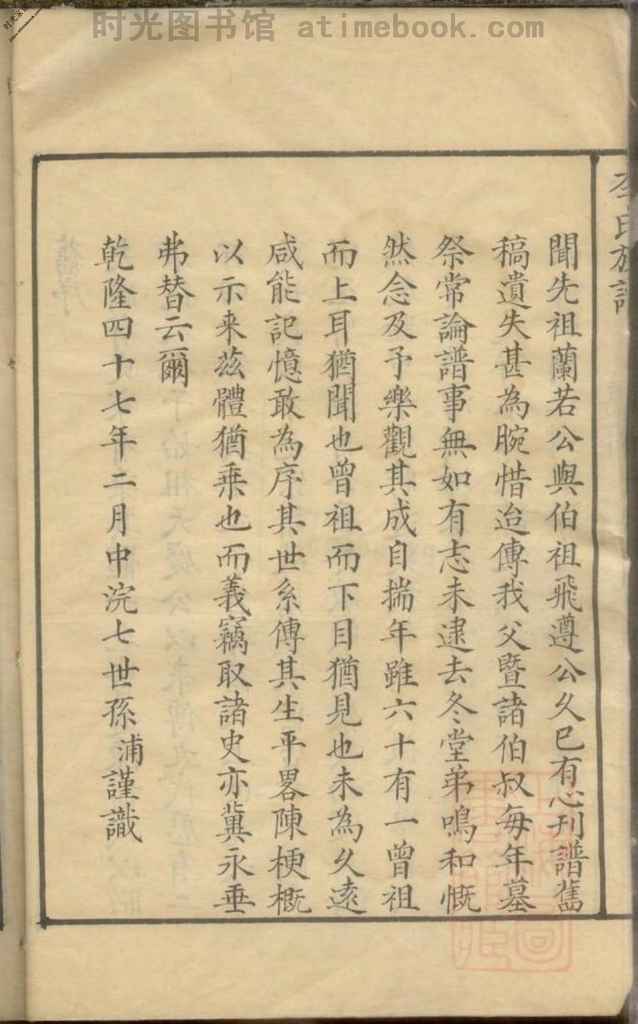 时光图书馆 atimebook.com
李氏族譜
聞先祖蘭若公與伯祖飛遵公久已有心刊譜舊
稿遺失甚為腕惜迨傳我父暨諸伯叔每年墓
祭常論譜事無如有志未逮去冬堂弟鳴和慨
然念及予樂觀其成自揣年雖六十有一曾祖
而上耳猶聞也曾祖而下目猶見也未為久遠
咸能記憶敢為序其世系傳其生平畧陳梗概
以示来兹體猶乗也而義竊取諸史亦冀永垂
弗替云爾
乾隆四十七年二月中浣七世孫浦謹識